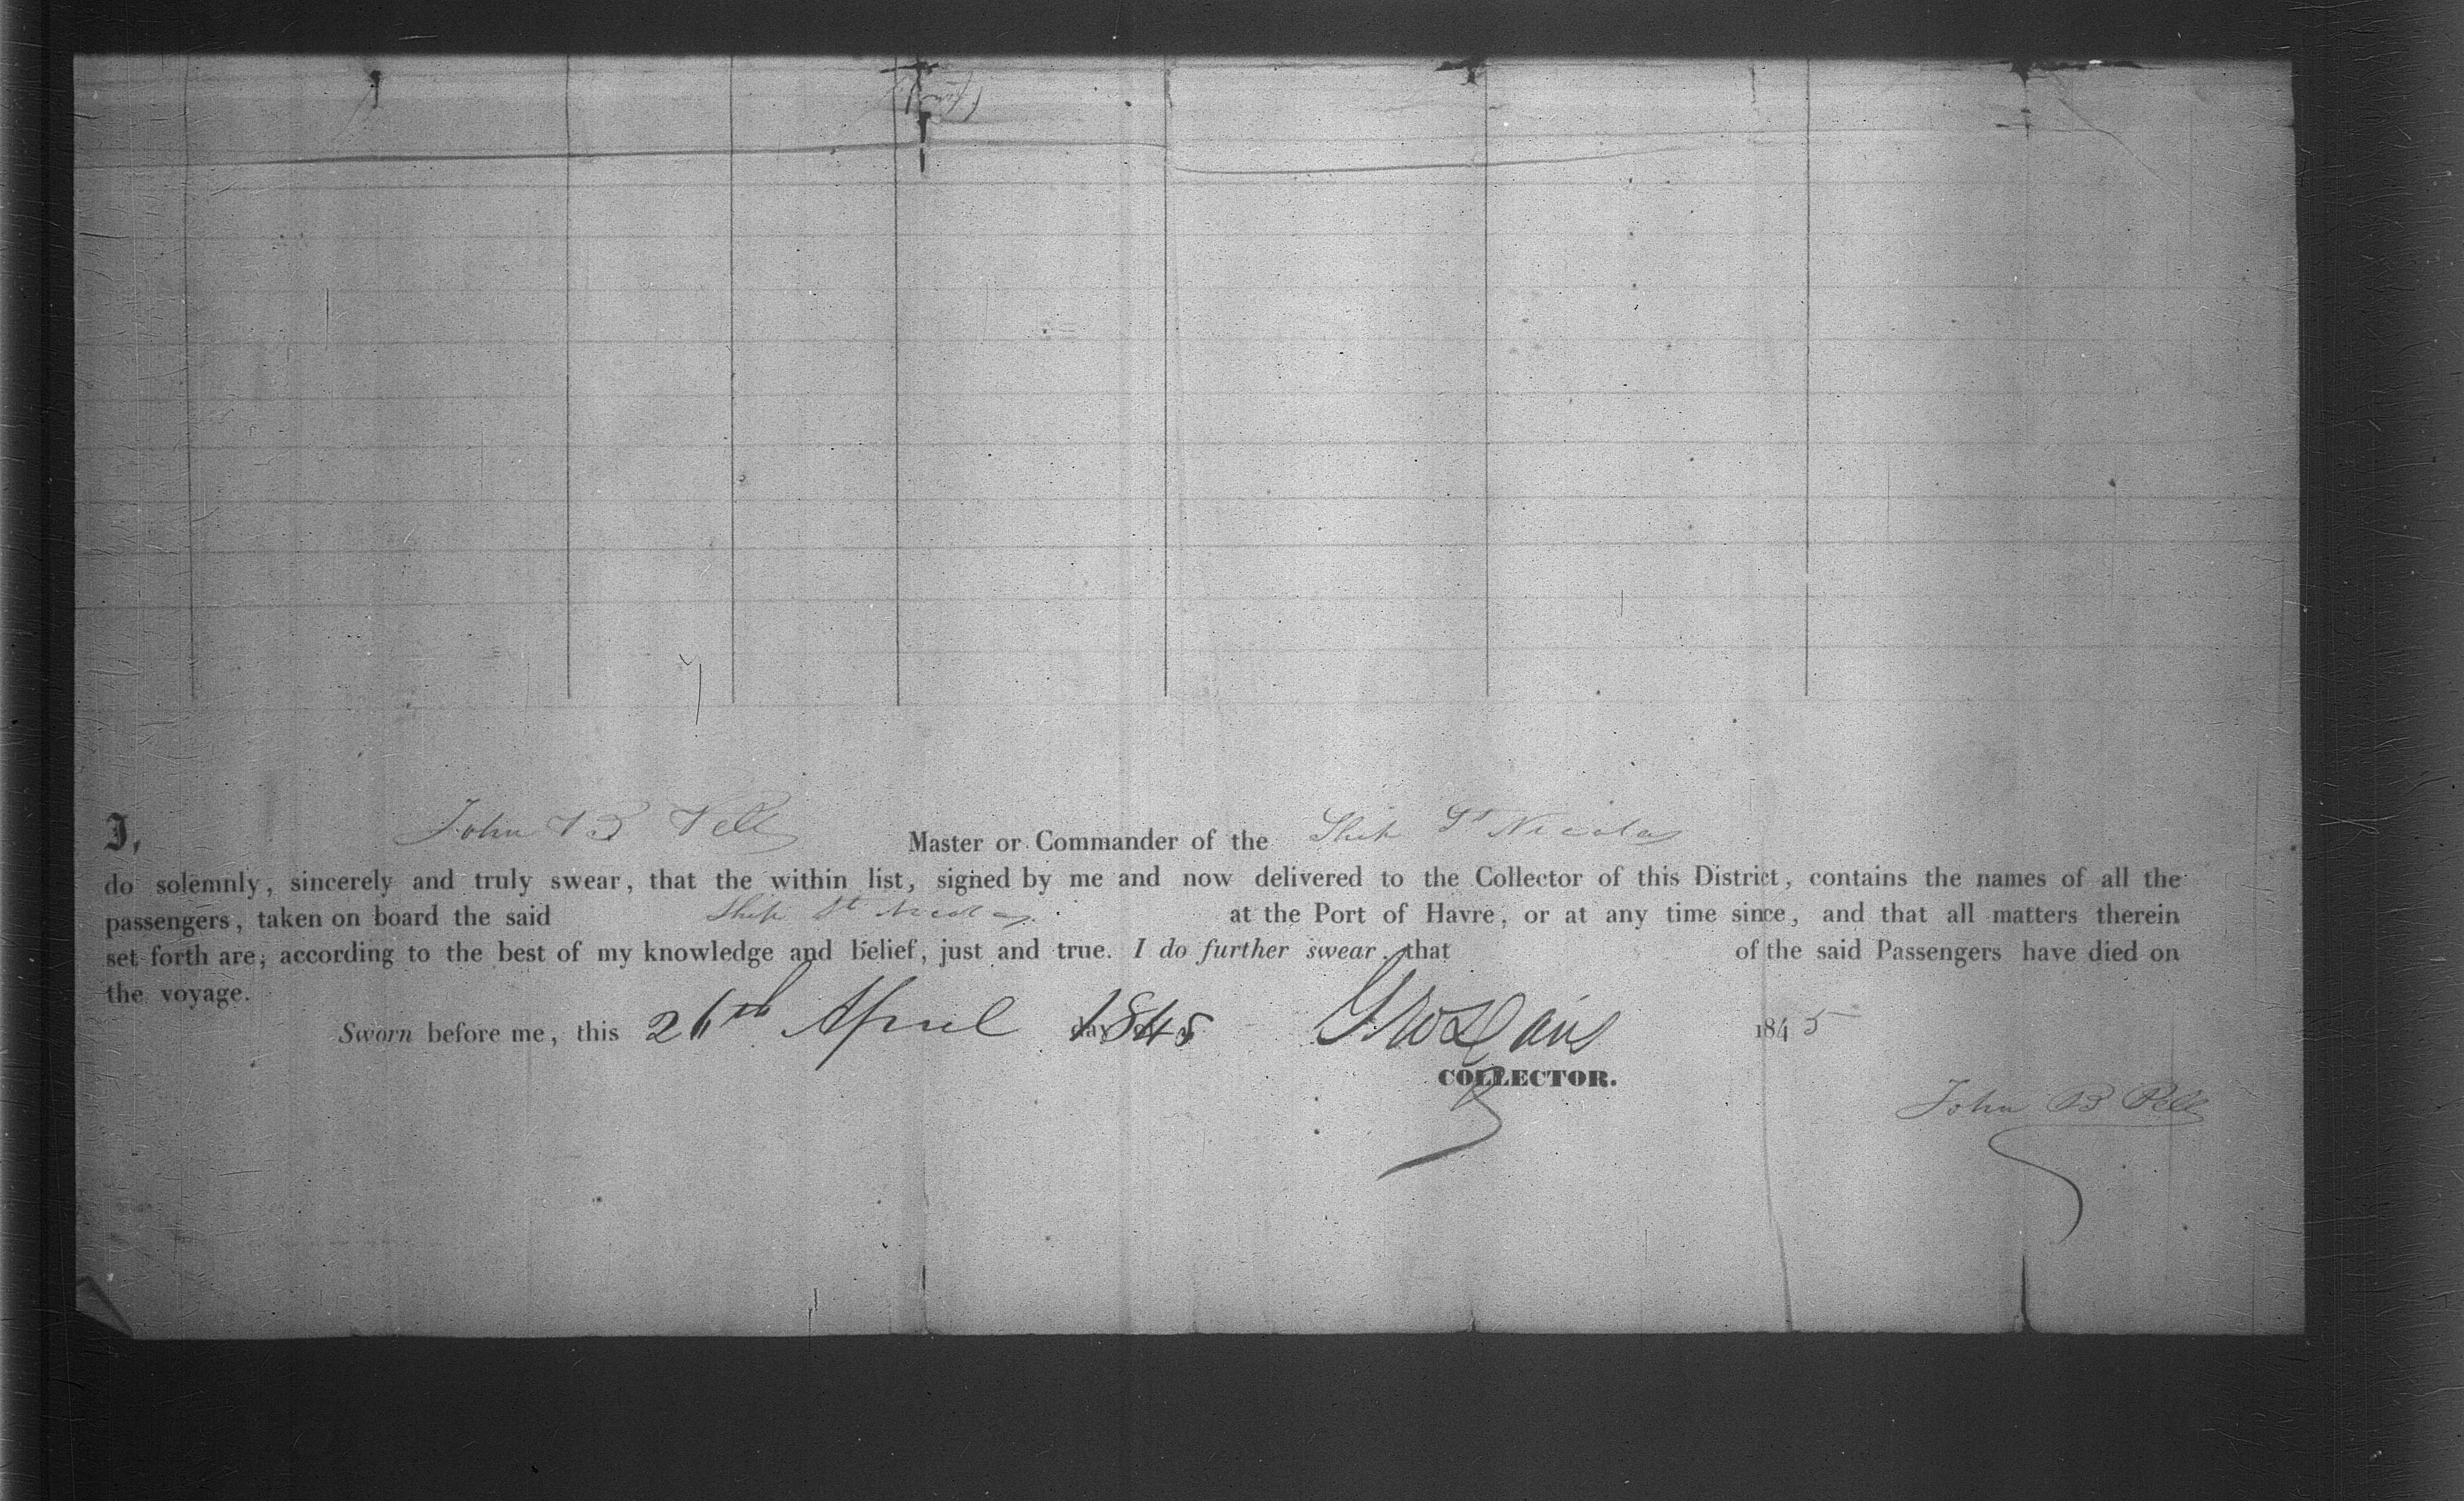 I, John B Pell Master or Commander of the Ship St Nicolas
do solemnly, sincerely and truly swear, that the within list, signed by me and now delivered to the Collector of this District, contains the names of all the
passengers, taken on board the said Ship St Nicolas at the Port of Havre, or at any time since, and that all matters therein
set forth are, according to the best of my knowledge and belief, just and true. I do further swear, that of the said Passengers have died on
the voyage.
Sworn before me, this 26th April day 1845 1845
COLLECTOR.
John B Pell